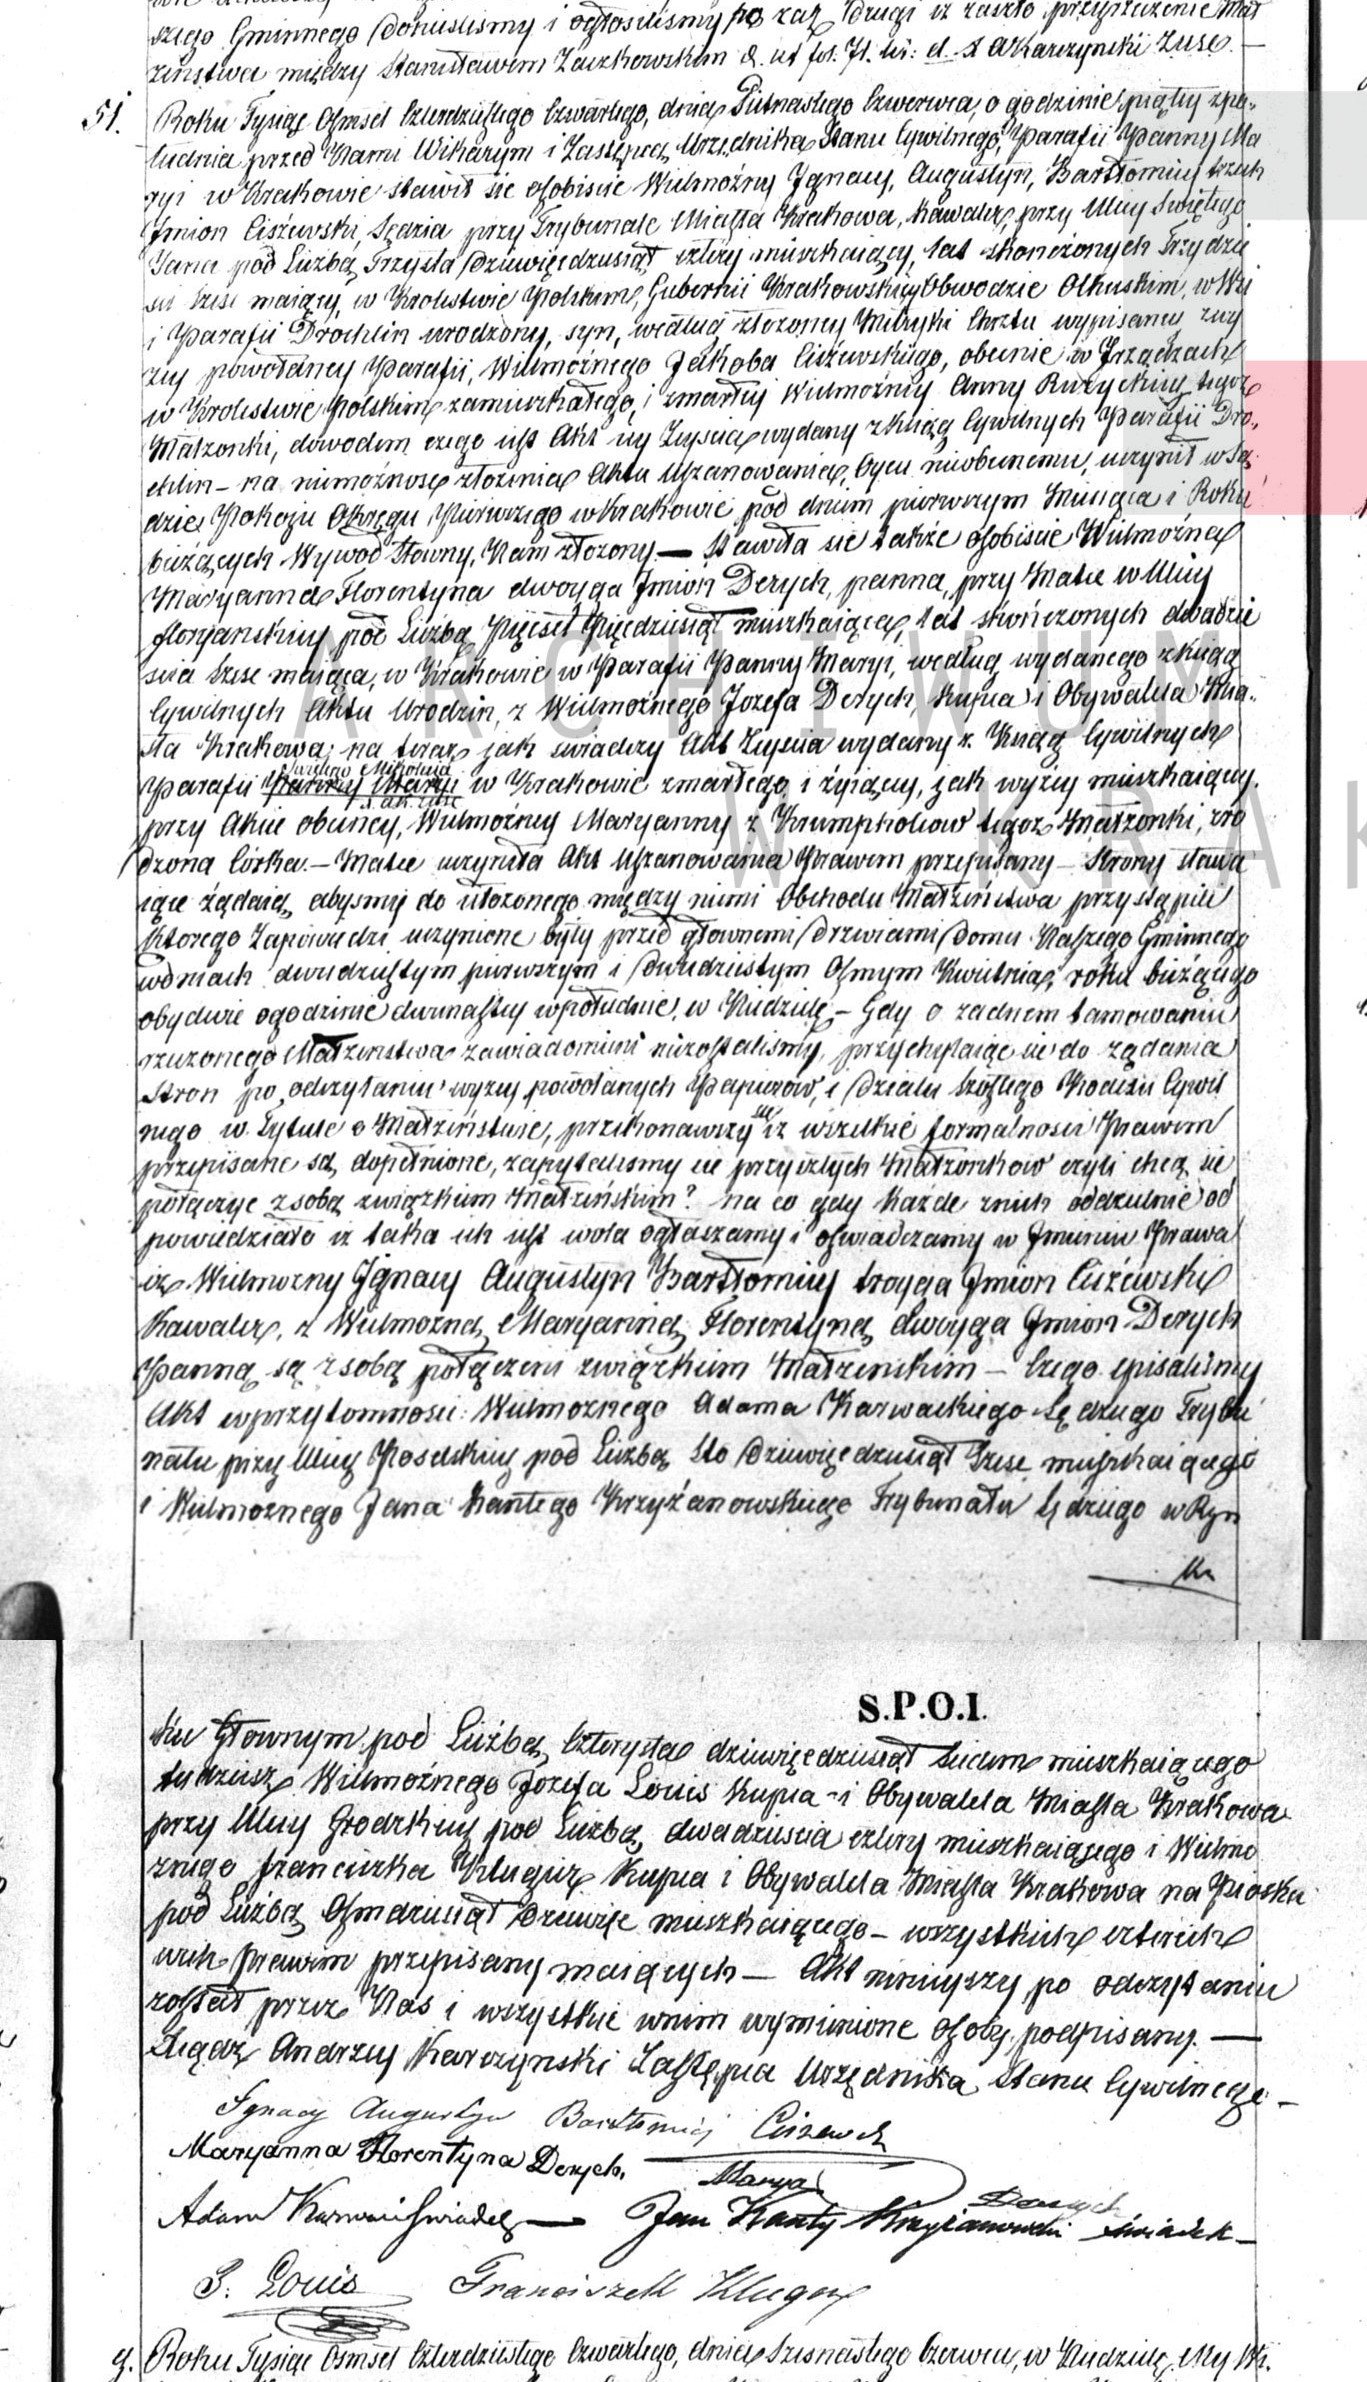 szego Gminnego donieslismy i ogłosilismy po raz drugi iz zaszło przyrzeczenie Mał
zeństwa między Stanisławem Zaczkowskim &. ut fol. 71. X A Karczyński Zusc. —
51.
Roku Tysiąc Osmset Czterdziestego Czwartego, dnia Pietnastego Czerwca, o godzinie piątey zpo„
łudnia przed Nami Wikarym i Zastępcą Urzędnika Stanu Cywilnego, Parafii Panny Ma
ryi w Krakowie stawił sie osobiscie Wielmożny Ignacy, Augustyn, Bartłomiey trzech
Imion Ciszewski, Sędzia przy Trybunale Miasta Krakowa, Kawaler, przy Ulicy Swiętego
Jana pod Liczbą Trzysta dziewięcdziesiąt cztery mieszkaiący, lat skonczonych Trzydzie
sci szesc maiący, w Krolestwie Polskiem, Gubernii Krakowskiey Obwodzie Olkuskim, w Wsi
i Parafii Drochlin urodzony, syn, według złozoney Metryki Chrztu wypisaney zwy
zey powołaney Parafii, Wielmożnego Jakoba Ciszewskiego, obecnie w Irządzach
w Krolestwie Polskiem zamieszkałego, i zmarłey Wielmożney Anny Ruzyckiey tegoz
Małzonki, dowodem czego iest Akt iey Zeyscia wydany z Ksiąg Cywilnych Parafii Dro„
chlin – na niemożnosc złozenia Aktu Uszanowania, Oycu nieobecnemu, uczynił w Są
dzie Pokoju Okręgu Pierwszego w Krakowie pod dniem pierwszym Miesiąca i Roku
bieżących Wywod Słowny, Nam złozony. — Stawiła sie także osobiscie Wielmożna
Maryanna Florentyna dwoyga Imion Derych, panna, przy Matce w Ulicy
Floryanskiey pod Liczbą Pięcset Pięcdziesiąt mieszkaiąca, lat skończonych dwadzie
scia szesc maiąca, w Krakowie w Parafii Panny Maryi, według wydanego z Ksiąg
Cywilnych Aktu Urodzin, z Wielmożnego Jozefa Derych, Kupca i Obywatela Mia„
sta Krakowa na teraz jak swiadczy Akt Zeyscia wydany z Ksiąg Cywilnych
Swiętego Mikołaja
Parafii Panny Maryi w Krakowie zmarłego i żyiącey, jak wyżey mieszkaiącey.
przy Akcie obecney, Wielmożney Maryanny z Krumpholcow tegoz Małzonki, zro
dzona Corka. – Matka uczyniła Akt Uszanowania Prawem przepisany – Strony stawa
iące żądaią, abysmy do ułozonego między niemi Obchodu Małzeństwa przystąpili
ktorego Zapowiedzi uczynione były przed głownemi drzwiami domu Naszego Gminnego
w dniach dwudziestym pierwszym i dwudziestym Osmym Kwietnia, roku bieżącego
obydwie o godzinie dwunastey w południe, w Niedzielę. – Gdy o zadnem tamowaniu
rzeczonego Małzenstwa zawiadomieni niezostalismy, przychylaiąc sie do żądania
Stron po odczytaniu wyzey powołanych Papierow, i działu szostego Kodexu Cywil
nego w Tytule o Małzeństwie, przekonawszy sie iz wszelkie formalnosci Prawem
przepisane są dopełnione, zapytalismy sie przyszłych Małzonkow czyli chcą sie
połączyc z sobą związkiem Małzeńskim? na co gdy każde znich oddzielnie od
powiedziało iz taka ich iest wola ogłaszamy i oswiadczamy w Imieniu Prawa
iz Wielmozny Ignacy Augustyn Bartłomiey troyga Imion Ciszewski
Kawaler, z Wielmożną Maryanną Florentyną dwoyga Imion Derych
Panną są z sobą połączeni związkiem Małzenskim – Czego spisalismy
Akt w przytomnosci: Wielmoznego Adama Karwackiego Sędziego Trybu
nału przy Ulicy Poselskiey pod Liczbą Sto Dziewięcdziesiąt Szesc mieszkaiącego
i Wielmoznego Jana Kantego Krzyżanowskiego Trybunału Sędziego w Ryn
ku
S.P.O.I.
ku Głownym pod Liczbą Czterysta dziewięcdziesiąt siedm mieszkaiącego
tudziesz Wielmożnego Jozefa Louis Kupca i Obywatela Miasta Krakowa
przy Ulicy Grodzkiey pod Liczbą dwadziescia cztery mieszkaiącego i Wielmo
znego Franciszka Kluger Kupca i Obywatela Miasta Krakowa na Piasku
pod Liczbą Osmdziesiąt Dziewięc mieszkaiącego – wszystkich czterech
wiek Prawem przepisany maiących — Akt ninieyszy po odczytaniu
został przez Nas i wszystkie wnim wymienione Osoby podpisany. —
Xiądz Andrzey Karczynski Zastępca Urzędnika Stanu Cywilnego. –
Ignacy Augustyn Bartłomiej Ciszewski
Maryanna Florentyna Derych. Marya Derych
Adam Karwacki Swiadek — Jan Kanty Krzyżanowski swiadek –
J. Louis Franciszek Kluger
Roku Tysiąc Osmset Czterdziestego Czwartego, dnia Szesnastego Czerwca, w Niedzielę, My Wi.
ARCHIWUM
W KRAK